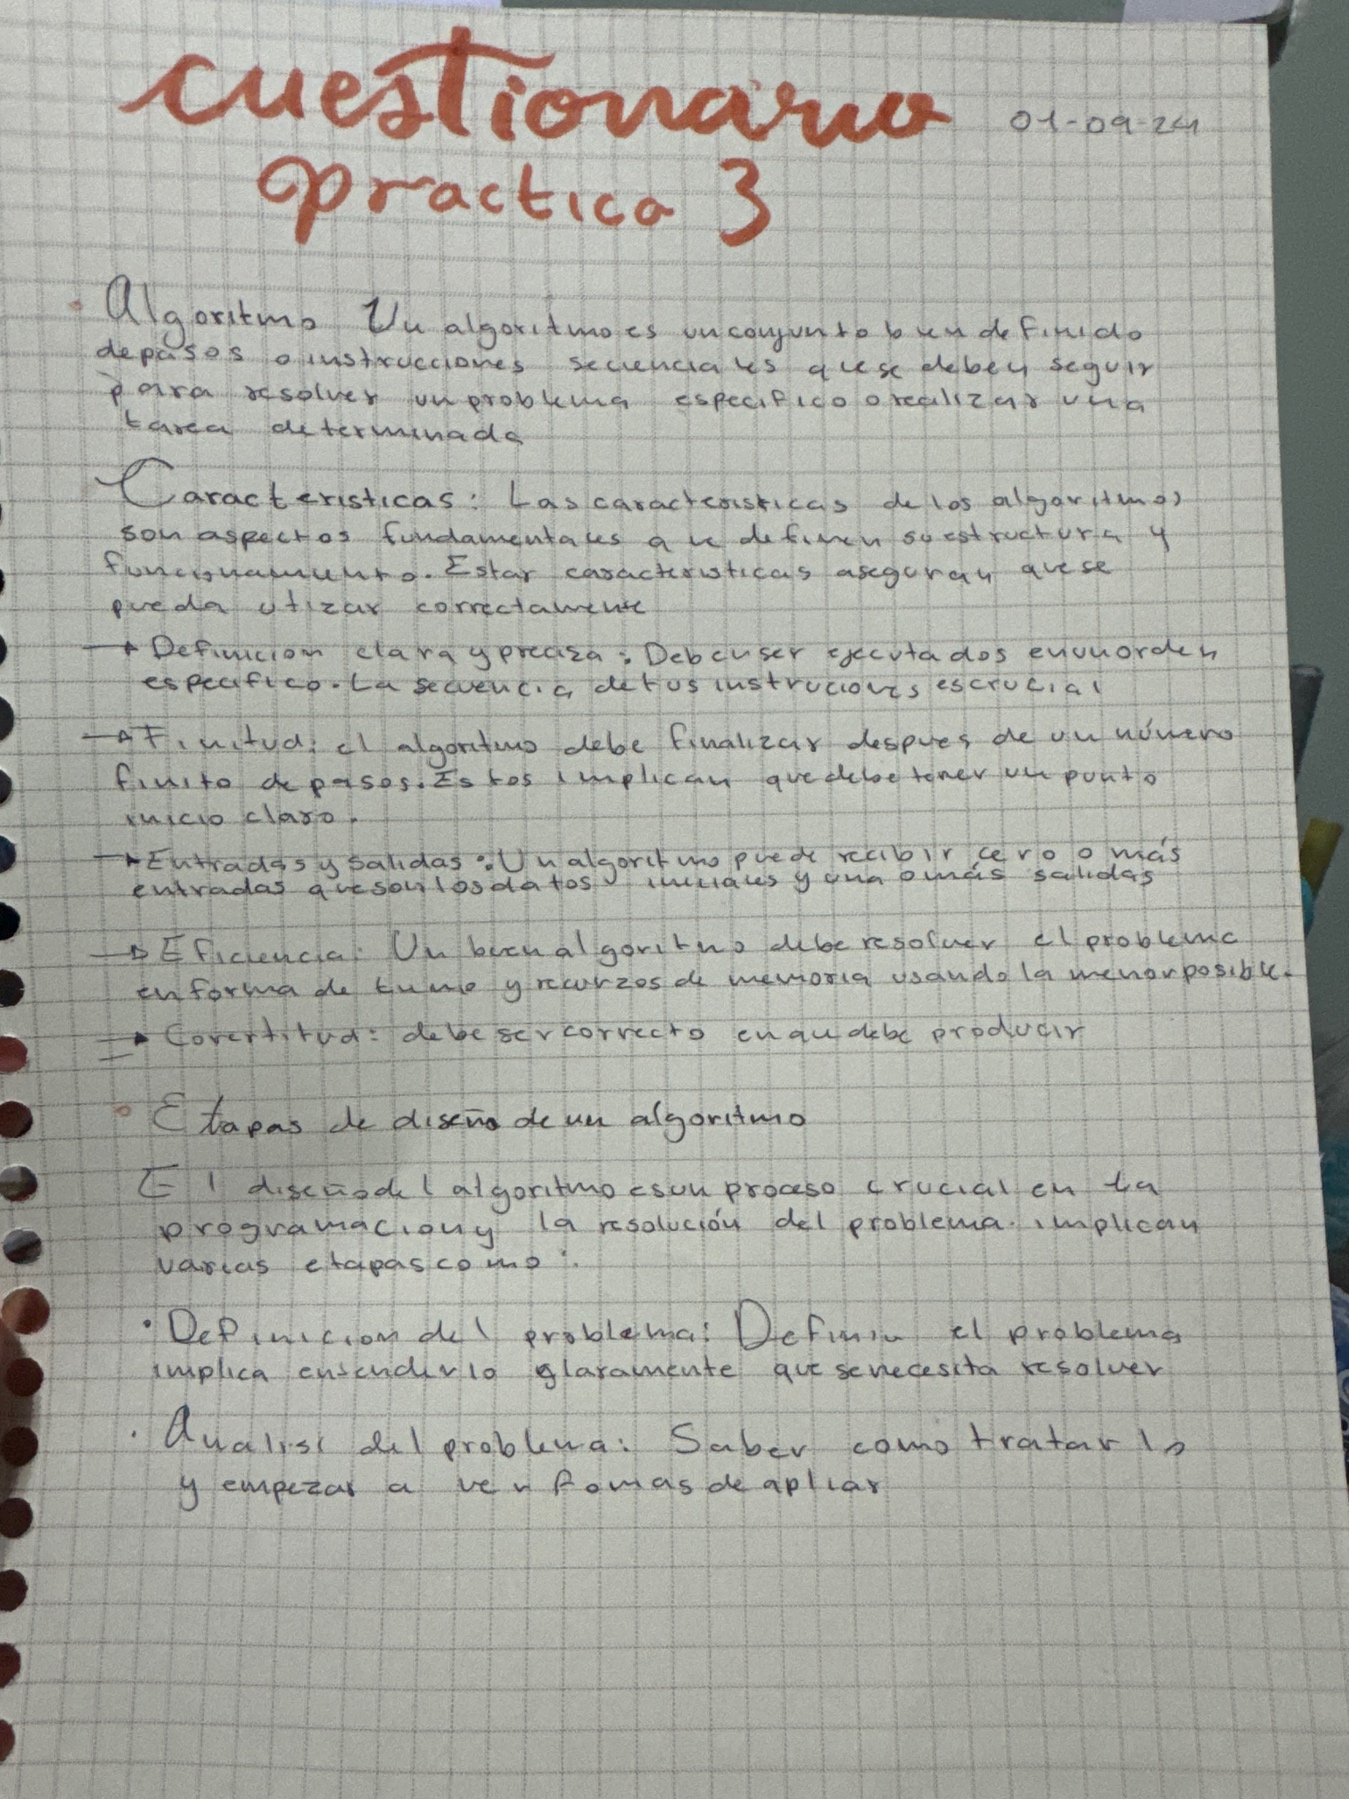 cuestionario 01-09-24
practica 3
Algoritmo Un algoritmo es un conjunto bien definido
de pasos o instrucciones secuenciales que se deben seguir
para resolver un problema especifico o realizar una
tarea determinada
Caracteristicas: Las caracteristicas de los algoritmos
son aspectos fundamentales que definen su estructura y
funcionamiento. Estar caracteristicas aseguran que se
pueda utizar correctamente
→ Definicion clara y preciza: Deben ser ejecutados en un orden
especifico. La secuencia de tus instruciones es crucial
→ Finitud: el algoritmo debe finalizar despues de un número
finito de pasos. Estos implican que debe tener un punto
inicio claro.
→ Entradas y salidas: Un algoritmo puede recibir cero o más
entradas que son los datos iniciales y una o más salidas
→ Eficiencia: Un buen algoritmo debe resolver el problema
en forma de tiempo y recurzos de memoria usando la menor posible.
→ Corertitud: debe ser correcto en que debe producir
• Etapas de diseño de un algoritmo
El diseño del algoritmo es un proceso crucial en la
programacion y la resolución del problema. implican
varias etapas como:
• Definicion del problema: Definir el problema
implica entenderlo claramente que se necesita resolver
• Analisi del problema: Saber como tratarlo
y empezar a ver fomas de apliar